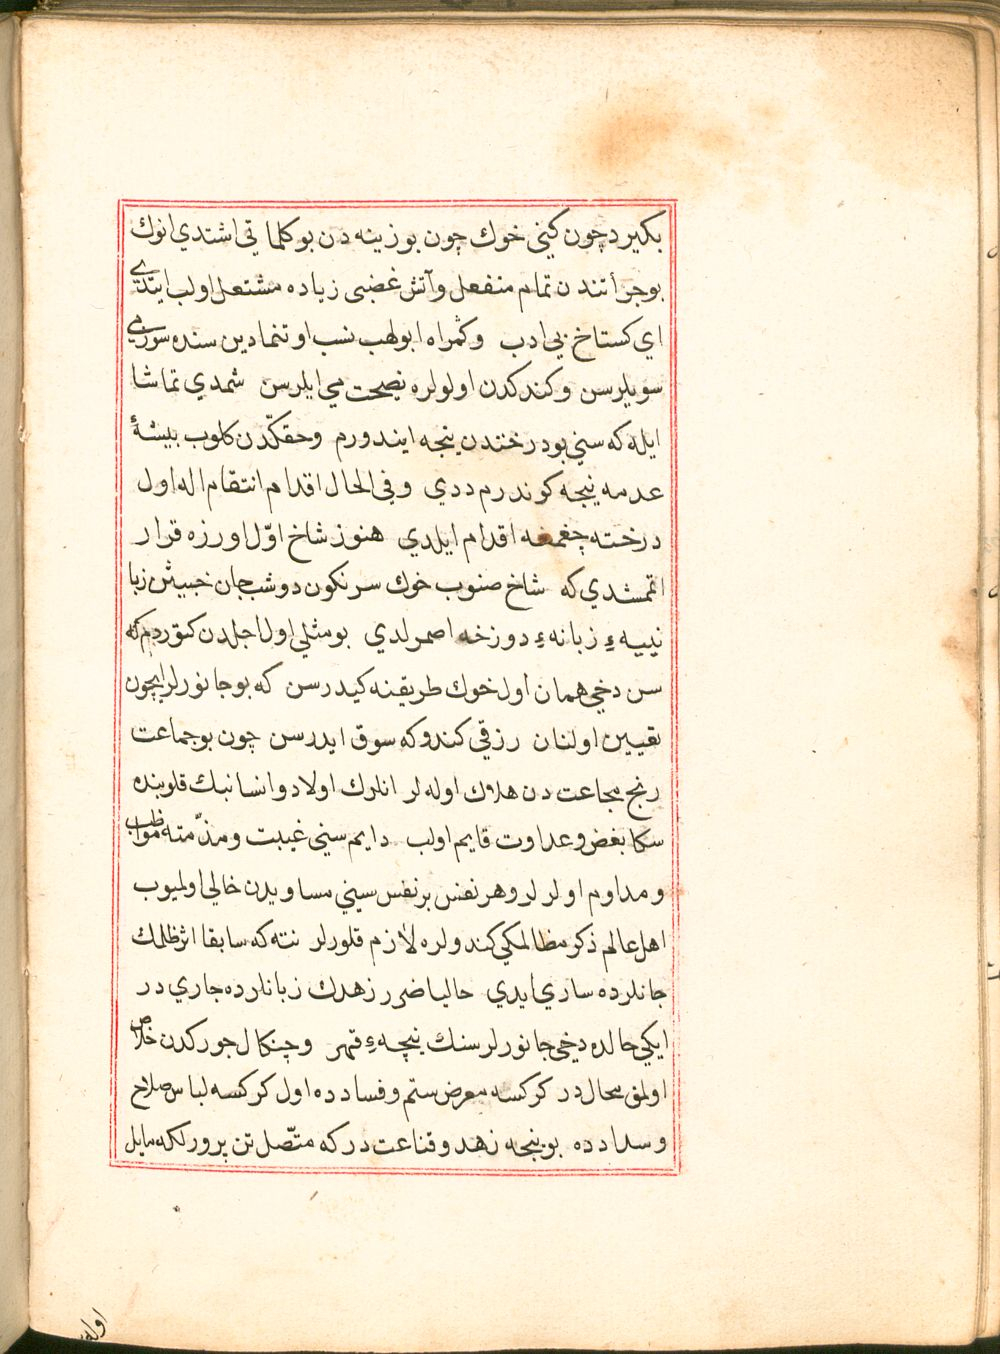 بكيرد چون كيني خوك چون بوزينه دن بو كلماتي اشتدي انوك
بوجرأتندن تمام منفعل وآتش غضبى زياده مشتعل اولب ايتدي
اي كستاخ بي ادب وكمراه ابولهب نسب اوتنمادين سنده سوزمي
سويلرسن وكندكدن اولولره نصحت مي ايلرسن شمدي تماشا
ايله كه سني بو درختدن نيجه ايندورم وحقكدن كلوب بيشۀ
عدمه نيجه كوندرم ددي وفي الحال اقدام انتقام اله اول
درخته چغمغه اقدام ايلدي هنوز شاخ اوّل اوزره قرار
اتمشدي كه شاخ صنوب خوك سرنكون دوشب جان خبيثن زبا
نييهء زبانهء دوزخه اصمرلدي بو مثلي اول اجلدن كتوردم كه
سن دخي همان اول خوك طريقنه كيدرسن كه بو جانورلر ايچون
تعيين اولنان رزقي كندوكه سوق ايدرسن چون بو جماعت
رنج مجاعت دن هلاك اوله لر انلرك اولاد وانسانبك قلوبنده
سكا بغض وعداوت قايم اولب دايم سني غيبت ومذمّته مواظب
ومداوم اولرلر وهر نفس بر نفس سيني مساويدن خالي اولميوب
اهل عالم ذكر مظالمكي كندولره لازم قلورلر نته كه سابقا اثر ظلمك
جانلرده ساري ايدي حاليا ضرر زهدك زبانلرده جاري در
ايكي حالده دخي جانورلر سنك پنجهء قهر وچنكال جوركدن خلاص
اولمق محال در كركسه معرض ستم وفسادده اول كركسه لباس صلاح
وسدادده بو نيجه زهد وقناعت در كه متّصل تن پرورلكه مايل